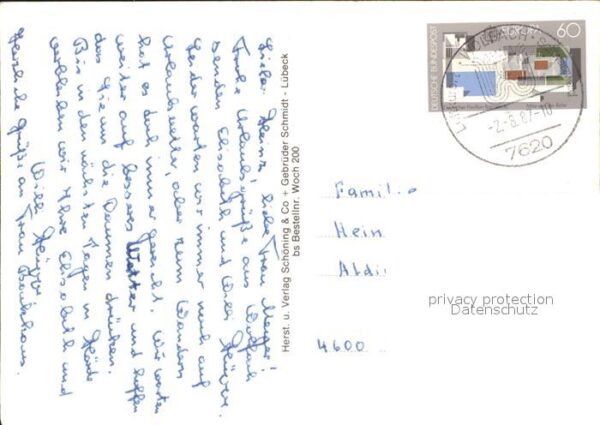 Lieber Heinz, liebe Frau Meyer!
Frohe Urlaubsgrüße aus Wolfach
senden Elisabeth und Willi
Leider warten wir immer noch auf
Urlaubswetter, aber zum Wandern
hat es doch immer gereicht. Wir warten
weiter auf besseres Wetter und hoffen
das Sie uns die Daumen drücken.
Bis in den nächsten Tagen in
verbleiben wir Ihre Elisabeth und
Willi
Herzliche Grüße an Frau
Herst. u. Verlag Schöning & Co + Gebrüder Schmidt · Lübeck
bs Bestellnr. Woch 200
DEUTSCHE BUNDESPOST
EUROPA
60
WOLFACH
-2.-8.87-10
7620
Familie
Hein
Aldi
privacy protection
Datenschutz
4600